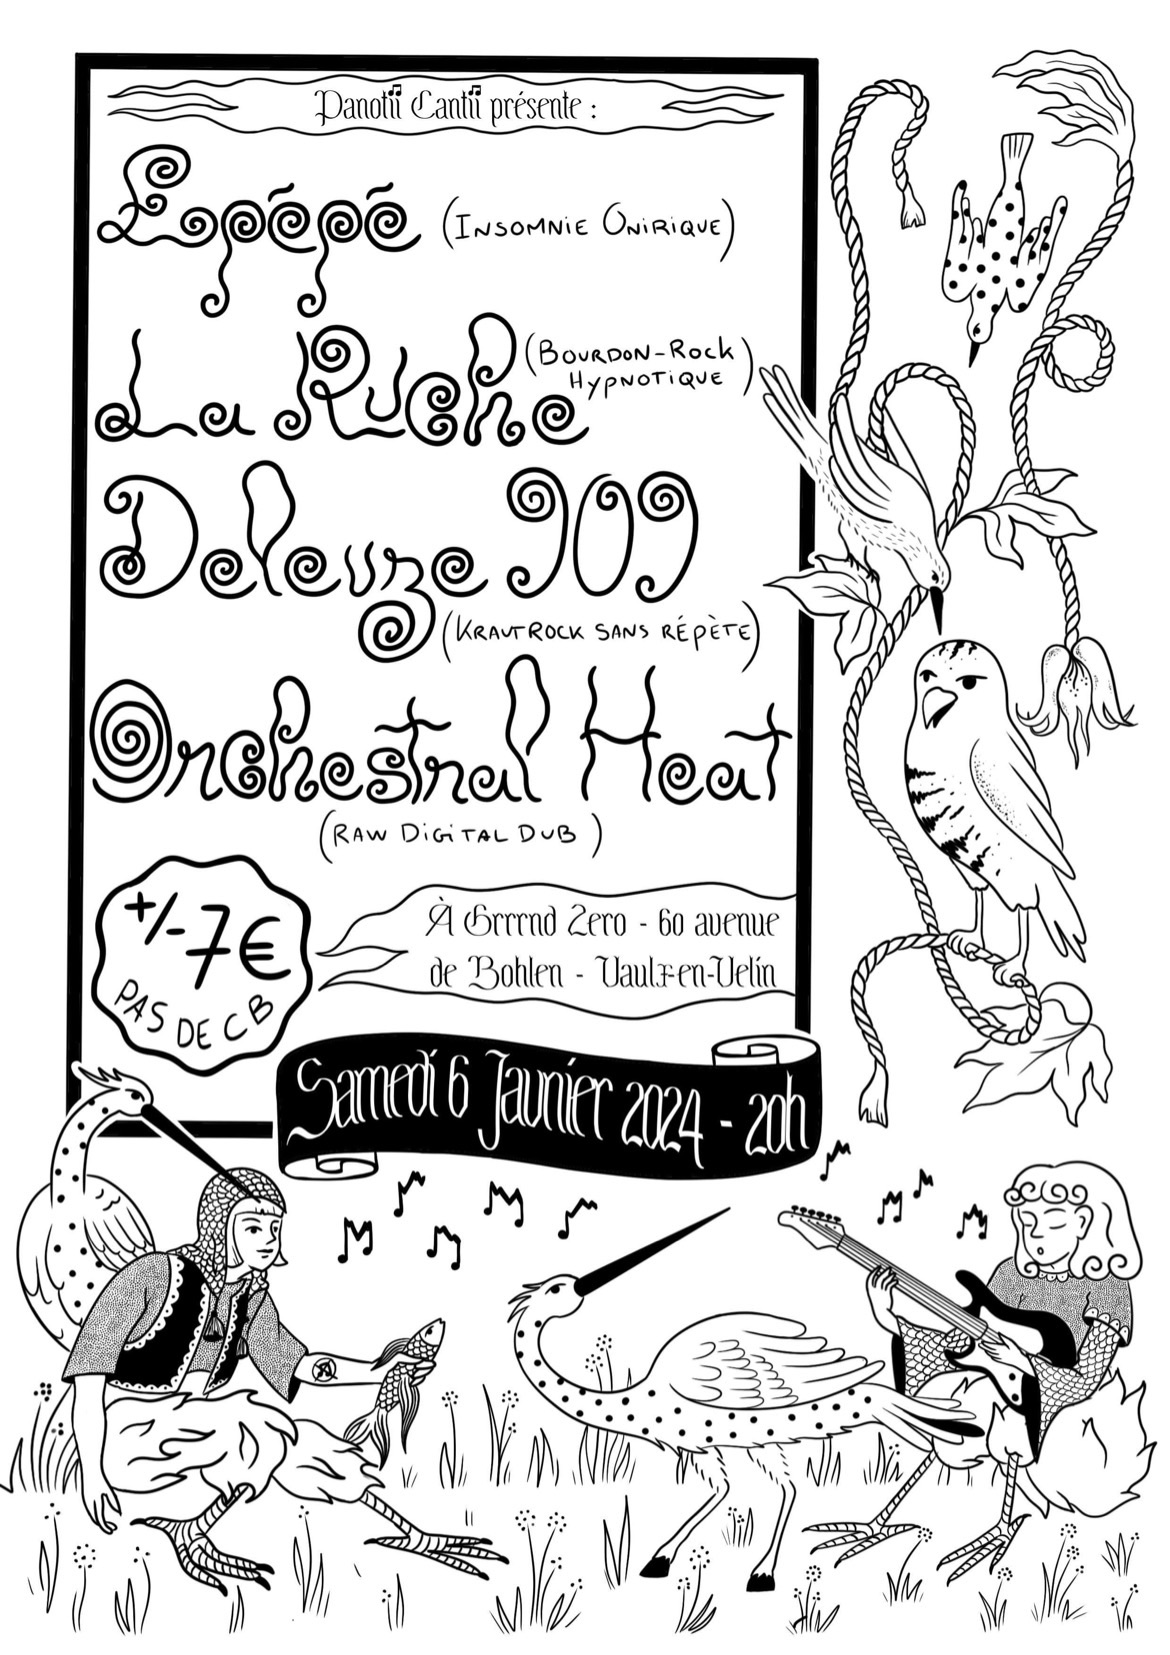 Panotii Cantii présente :
Epépé (Insomnie Onirique)
La Ruche (Bourdon-Rock
Hypnotique)
Deleuze 909
(Krautrock sans répète)
Orchestral Heat
(Raw Digital Dub)
+/- 7€
PAS DE CB
À Grrrnd Zero - 60 avenue
de Bohlen - Vaulx-en-Velin
Samedi 6 Janvier 2024 - 20h